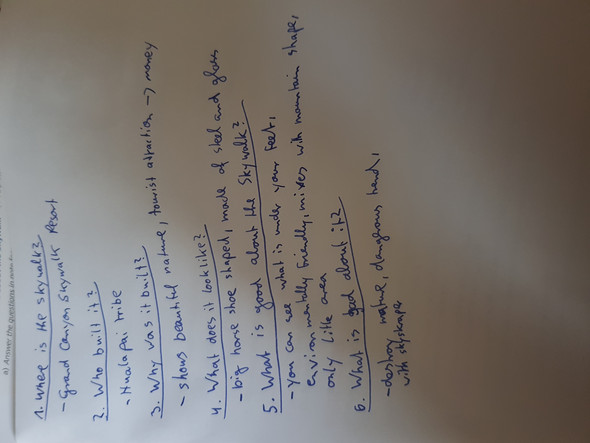 a) Answer the questions in
1. where is the skywalk?
- Grand Canyon Skywalk Resort
2. Who built it?
- Hualapai tribe
3. Why was it built?
- shows beautiful nature, tourist attraction → money
4. What does it look like?
- big horse shoe shaped, made of steel and glass
5. What is good about the Skywalk?
- you can see what is under your feet,
environmentally friendly, mixes with mountain shape,
only little area
6. What is about it?
- destroy nature, dangerous
with skyscrapes